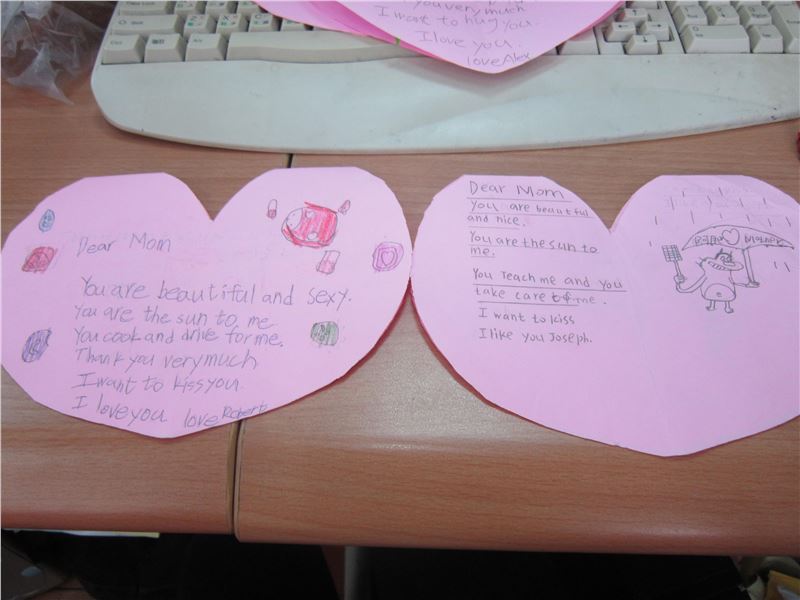 you very much
I want to hug you.
I love you.
love Alex
Dear Mom
You are beautiful and sexy.
You are the sun to me
You cook and drive for me.
Thank you very much
I want to kiss you
I love you love Robert
Dear Mom
You are beautiful
and nice.
You are the sun to
me.
You teach me and you
take care of me.
I want to kiss
I like you Joseph.